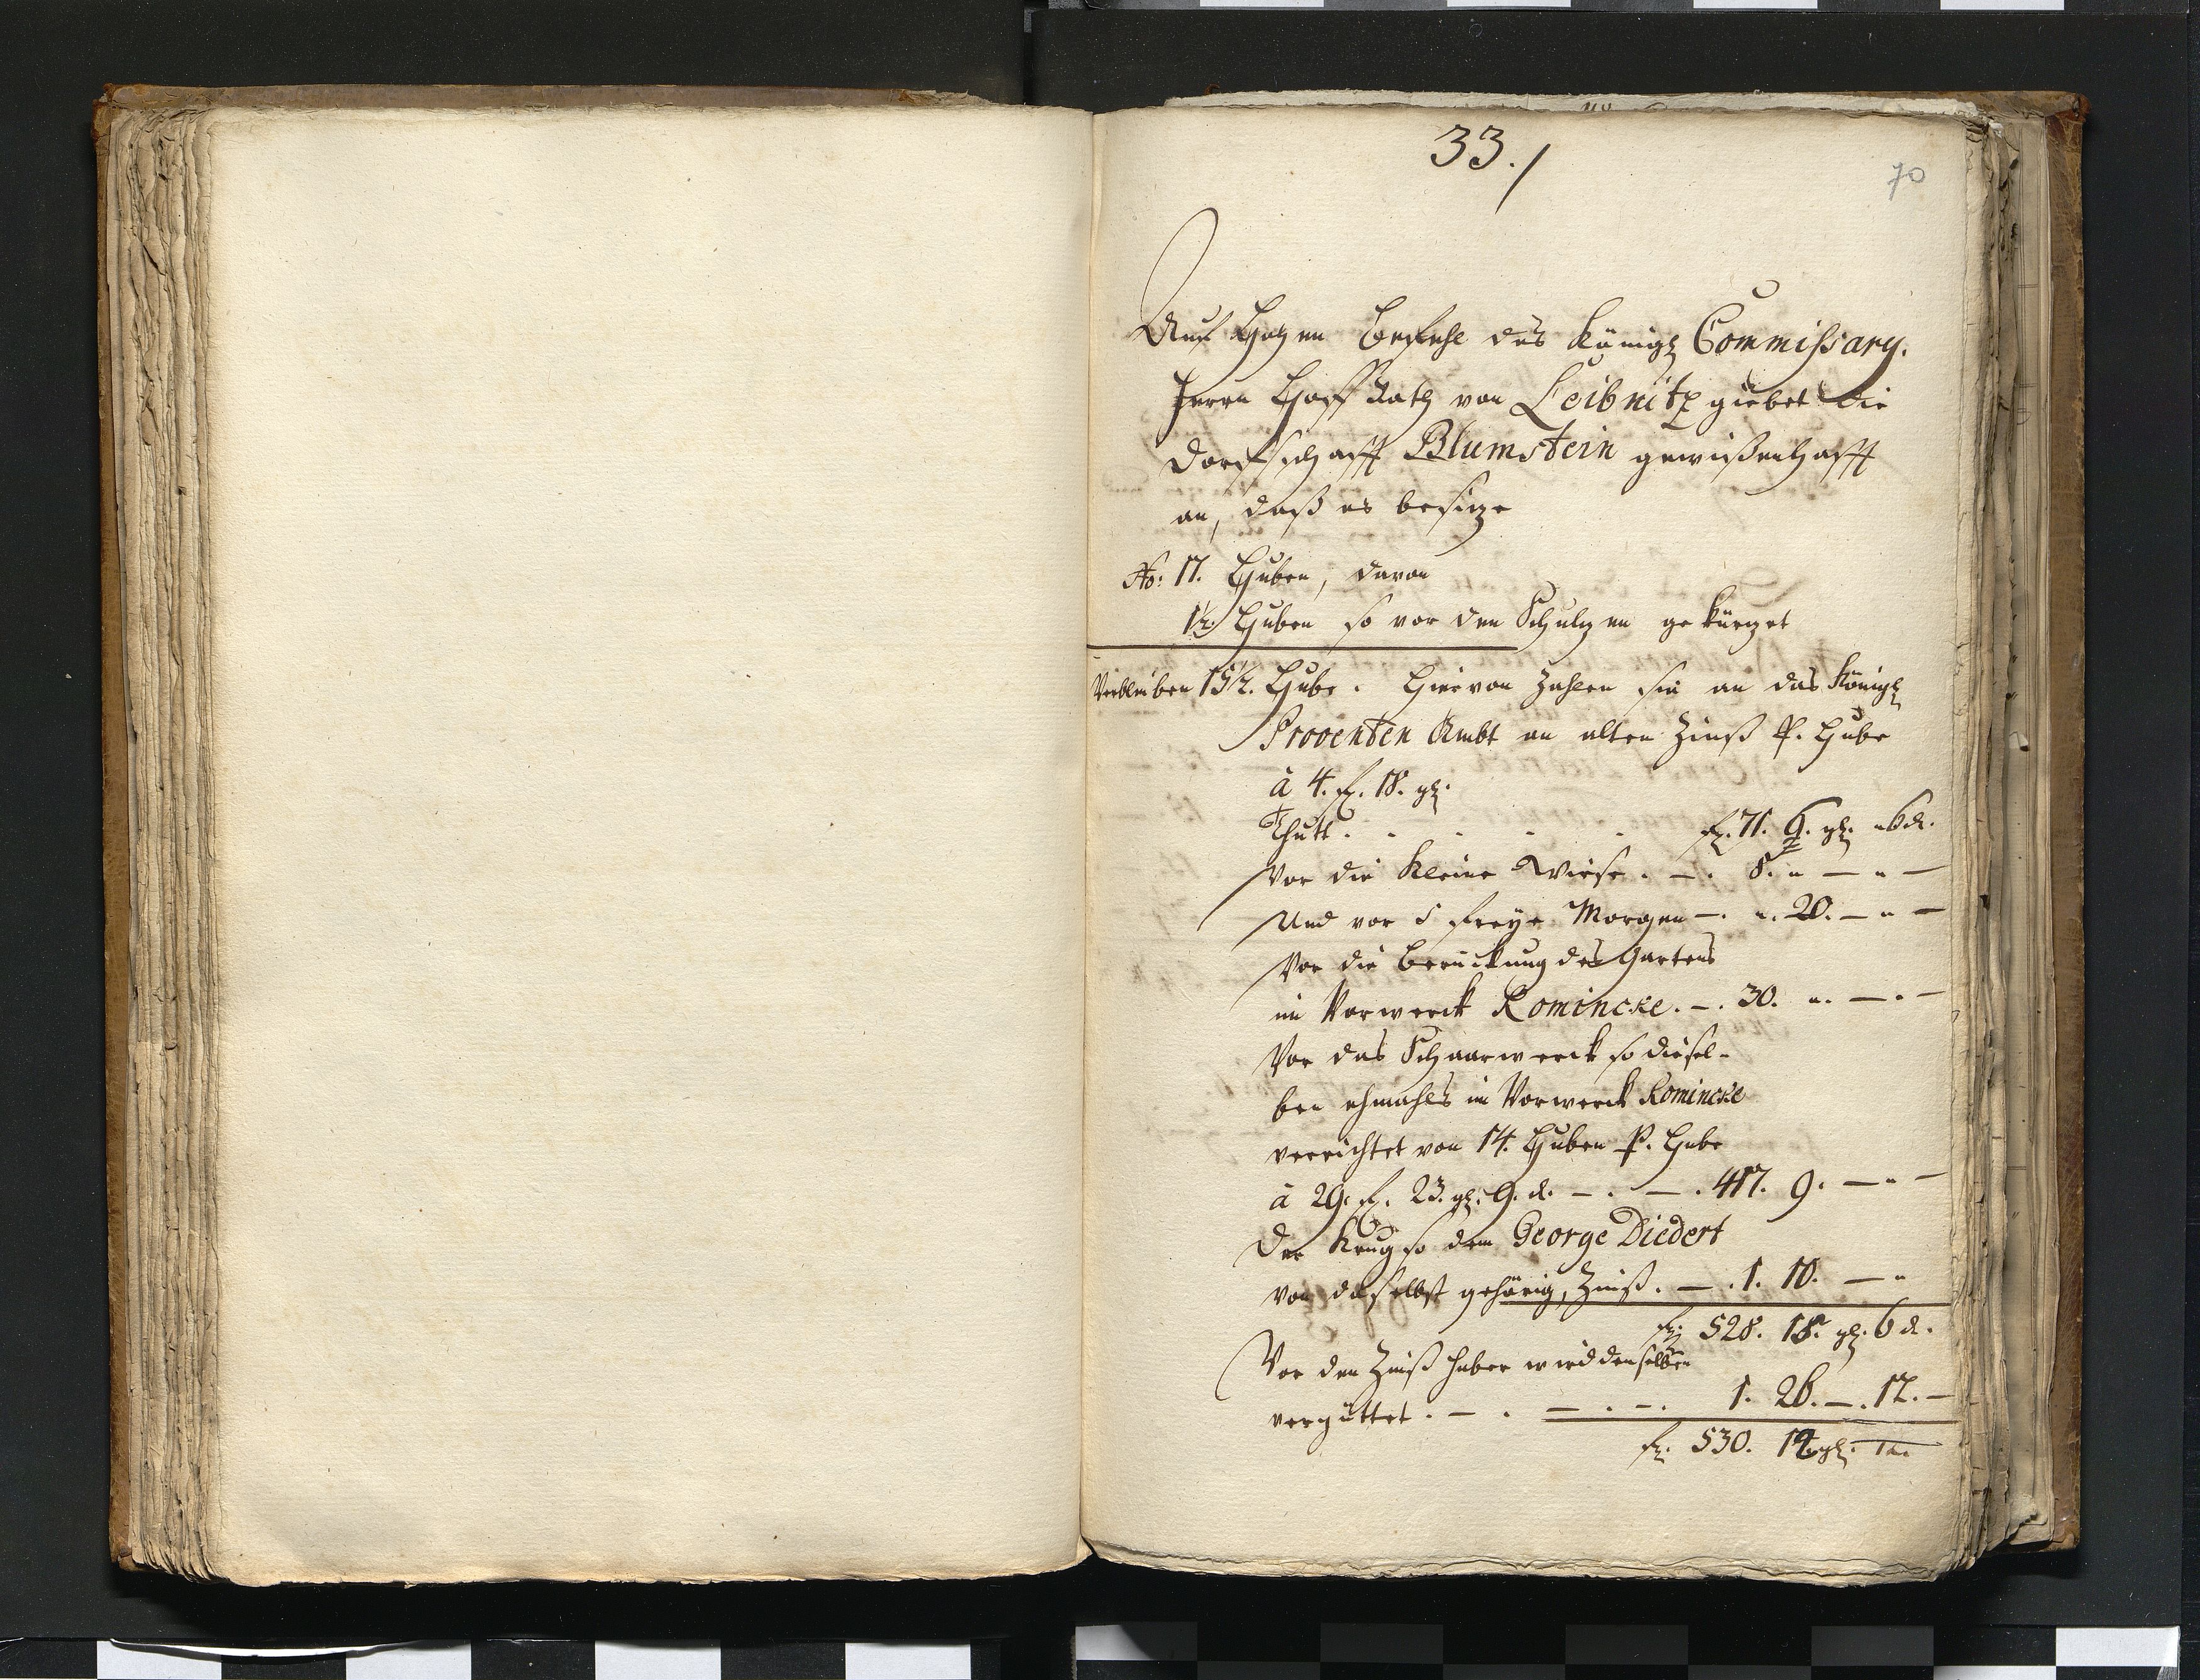 33./
70
Auf Hohen Befehl des Königl Commissary.
Herrn Hoff Rath von Leibnitz giebet die
Dorfschafft Blumstein gewißenhafft
an, daß es besitze
No: 17. Huben, davon
1½ Huben so vor den Schultzen gekürtzet
Verbleiben 15½. Hube. Hiervon zahlen sie an das Königl
Proventen Ambt an alten Zinß P. Hube
à 4. fl. 18. gl.
Thutt. . . . . fl. 71. 9. gl. - d.
Vor die kleine Wiese. —. 8. " — " —
Und vor 5 freye Morgen —. ". 20. — " —
Vor die Berückung des Gartens
im Vorwerck Romincke. —. 30. ". —. —
Vor das Schaarwerck so diesel-
ben ehmahls im Vorwerck Romincke
verrichtet von 14. Huben P. Hube
à 29. fl. 23. gl. 9. d. —. —. 417. 9. — " —
Der Krug so dem George Diedert
von daselbst gehörig, Zinß. —. 1. 10. — "
fl. 528. 18. gl. 6 d.
Vor den Zinß haber wird denselben
vergüttet. —. —. —. 1. 26. —. 12. —
fl. 530. gl.